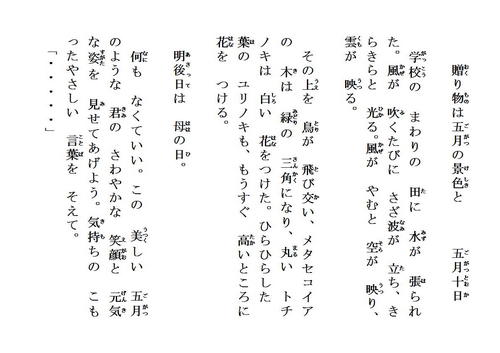 贈り物は五月の景色と　　五月十日
学校の　まわりの　田に　水が　張られ
た。風が　吹くたびに　さざ波が　立ち、き
らきらと　光る。風が　やむと　空が　映り、
雲が　映る。
その上を　鳥が　飛び交い、メタセコイア
の　木は　緑の　三角になり、丸い　トチ
ノキは　白い　花をつけた。ひらひらした
葉の　ユリノキも、もうすぐ　高いところに
花を　つける。
明後日は　母の日。
何も　なくていい。この　美しい　五月
のような　君の　さわやかな　笑顔と　元気
な姿を　見せてあげよう。気持ちの　こも
ったやさしい　言葉を　そえて。
「・・・・・」